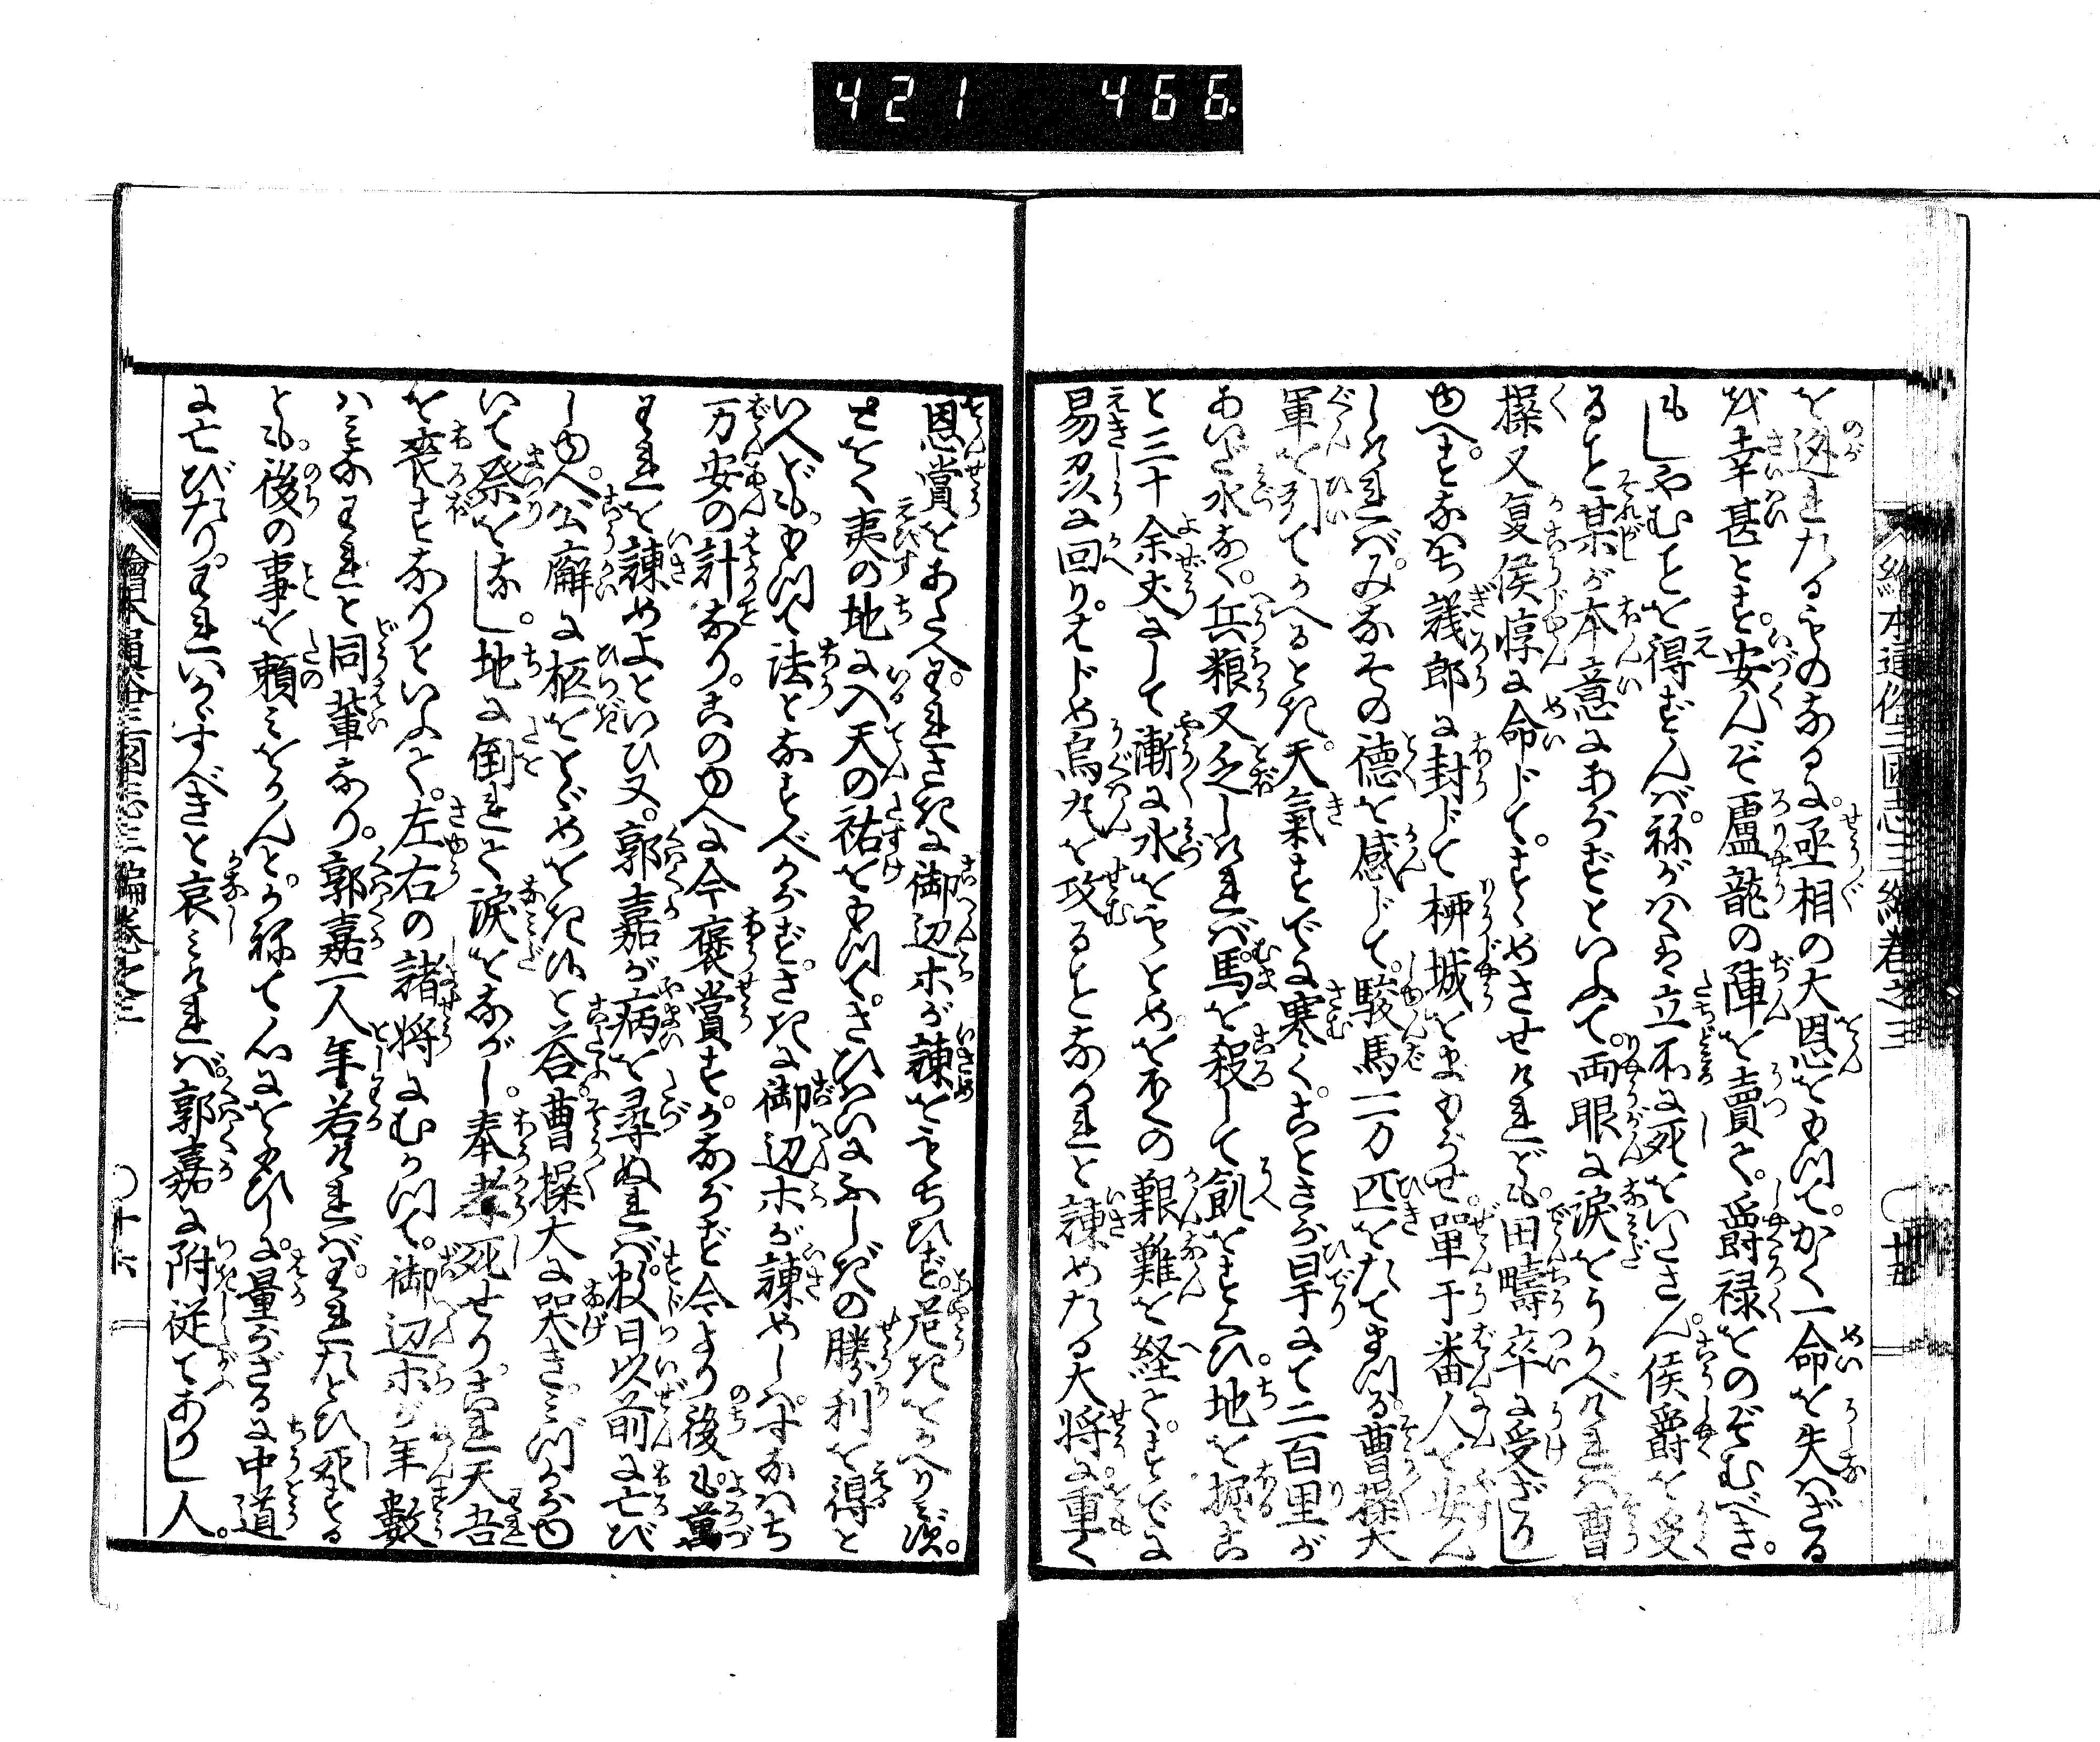 421 466
繪本通俗三國志三編卷之三 ○十五
を迯れたるものなるに。丞相の大恩をもつて。かく一命を失はざる
só幸甚とす。安んぞ盧龍の陣を賣て。爵禄をのぞむべき。
もしやむことを得ずんば。祢がはくは立所に死をいたさん。侯爵を受
ること某が本意にあらずといふて。両眼に涙をうかべければ曹
操又夏侯惇に命じて。すゝめさせけれども。田疇卒に受ざりし
ゆへ。すなはち議郎に封じて柳城をまもらせ。單于番人を安ん
しければ。みなその德を感じて。駿馬一万匹をたてまつる曹操大
軍を引てかへるとき。天氣すでに寒く。ことさら旱にて二百里が
あいだ水なく。兵粮又乏しければ馬を殺して飢をすくひ。地を掘こ
と三十余丈にして漸に水をもとめ。そくの艱難を経て。すでに
易州に回り。はじめ烏丸を攻ることなかれと諫めたる大将に。重く
恩賞をあたへ。われさきに御辺等が諫をもちひず。危きをかへりみず。
とをく夷の地に入天の祐をもつて。さひはいにふしぎの勝利を得と
いへども。もつて法となすべからず。さきに御辺等が諫めしは。すなはち
万安の計なり。このゆへに今褒賞す。かならず今より後も。萬
われを諫めよといひ又。郭嘉が病を尋ぬれば。数日以前に亡び
しゆへ。公廨に柩をとゞめをき候と荅。曹操大に哭き。みづからゆ
いて祭をなし。地に倒れて涙をながし。奉孝死せり。これ天吾
を喪すなりといふて。左右の諸将にむかつて。御辺等が年數
はみなわれと同輩なり。郭嘉一人年若ければ。われたとひ死する
とも。後の事を頼みをかんと。かねて心にをもひしに。量らざるに中道
に亡びたり。われいかゞすべきと哀みければ。郭嘉に附従てありし人。
繪本通俗三國志三編卷之三 ○十六